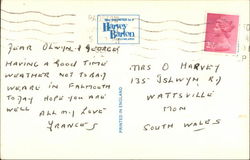 Harvey
Barton
DEAR OLWYN & GEORGE
HAVING A GOOD TIME
WEATHER NOT TO BAD
WE ARE IN FALMOUTH
TO DAY HOPE YOU ARE
WELL ALL MY LOVE
FRANCES
PRINTED IN ENGLAND
MRS O HARVEY
135 ISLWYN RD
WATTSVILLE
MON
SOUTH WALES